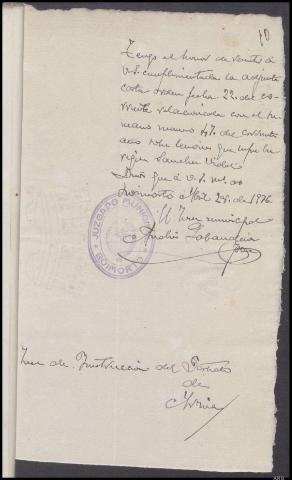 10
Tengo el honor de remitir á
V.S. cumplimentada la adjunta
carta orden fecha 22 del co-
rriente relacionada con el su-
mario numero 47 del corriente
año sobre lesiones que
Sanchez Vidal
Dios gue á V.S. m. as
Boimorto 24 de 1926
El Juez municipal
Andrés
JUZGADO MUNICIPAL
BOIMORTO
Juez de Instrucción del Partido
de
Arzúa